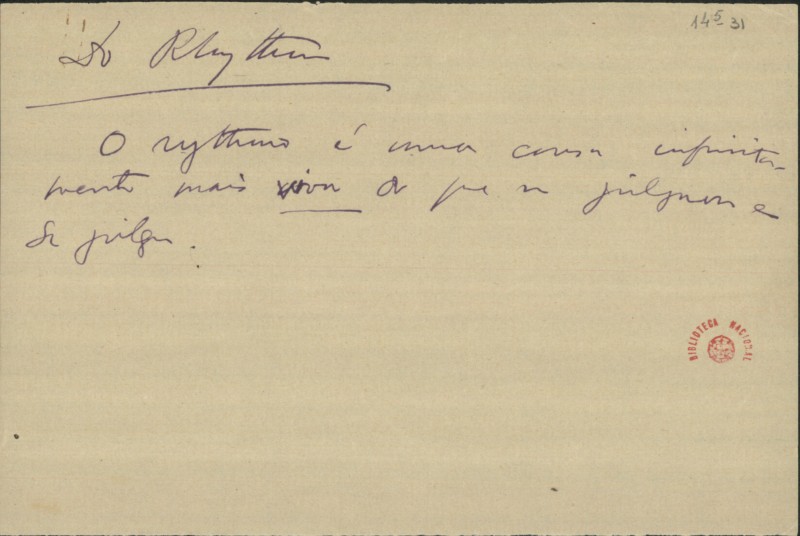 14⁵-31
Do Rhythmo
O rythmo é uma cousa infinita-
mente mais viva do que se julgou e
se julga.
BIBLIOTECA NACIONAL